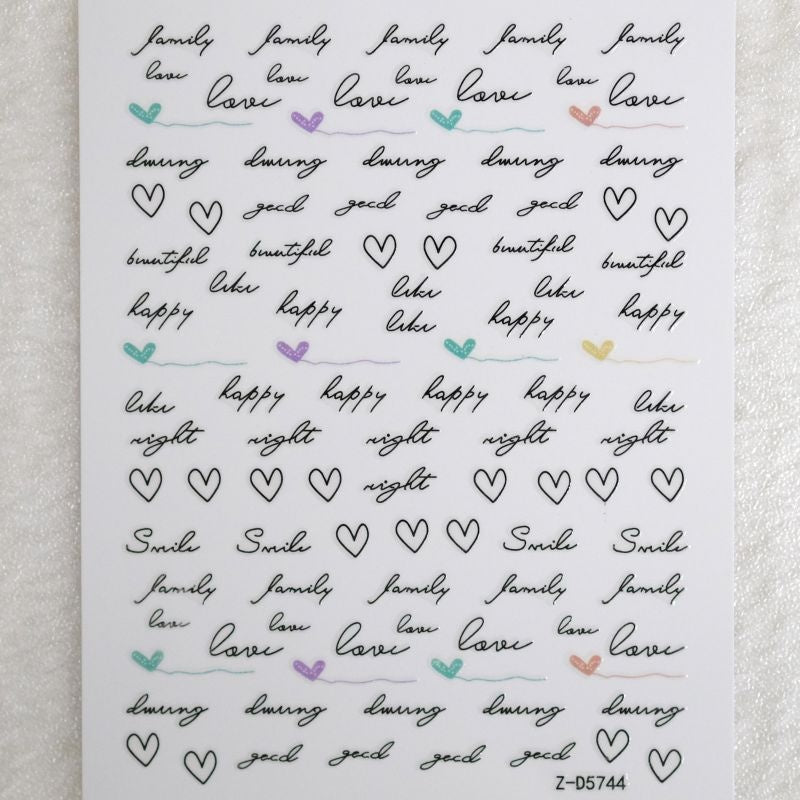 family family family family family
love love love love
love love love love
good good good good
beautiful beautiful beautiful beautiful
like like like
happy happy like happy happy
like happy happy happy happy like
right right right right right
right
Smile Smile Smile Smile
family family family family family
love love love love
love love love love
good good good good
Z-D5744